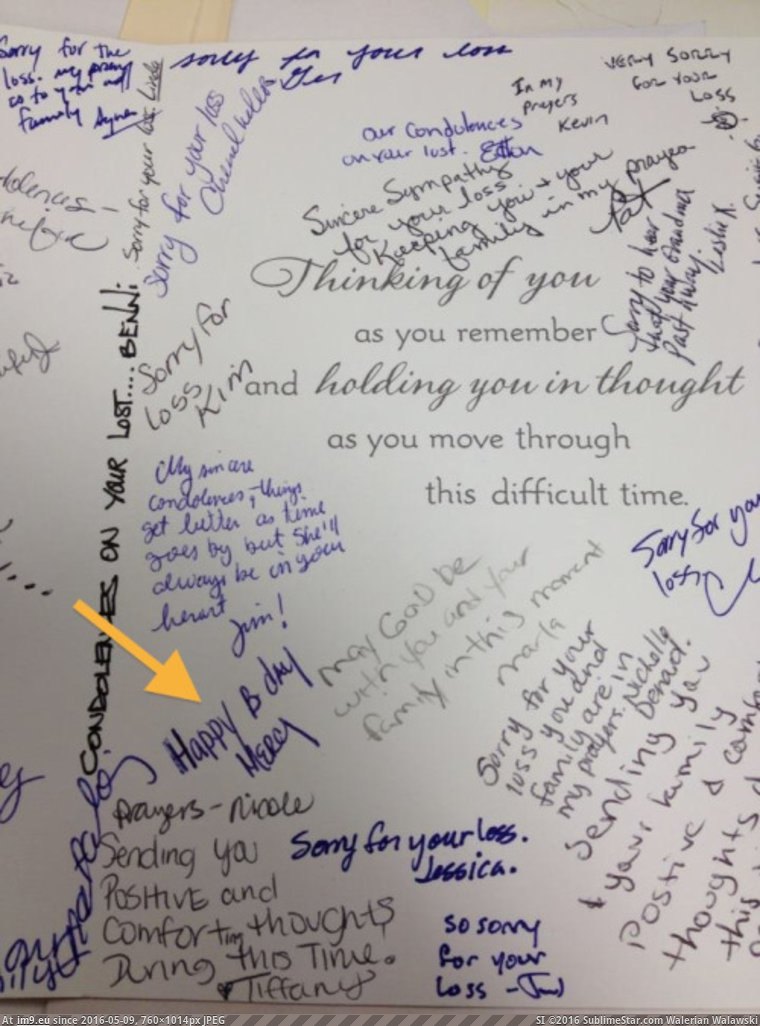 Sorry for the
loss. my
go to you and
family
sorry for your loss
VERY SORRY
FOR YOUR
LOSS
In my
prayers
Kevin
our condolences
on your lost. Ethan
Sorry for your loss Linda
Sorry for your loss
Sincere Sympathy
for your loss
Keeping you + your
family in my prayers
Pat
Sorry to hear
that your Grandma
Past away.
Leslie K.
Thinking of you
as you remember
and holding you in thought
as you move through
this difficult time.
Sorry for
loss
Kim
CONDOLENCES ON YOUR LOST.... BENNI
My sincere
condolences - things
get better as time
goes by but she'll
always be in your
heart
Jim!
Sorry for your
loss
may GOD be
with you and your
family in this moment
marla
Happy B day
Mercy
Sorry for your
loss you and
family are in
my prayers. Nichelle
Sending you
& your family
Postive & comfort
thoughts
this
Prayers - Nicole
Sending you
POSITIVE and
Comforting thoughts
During this Time.
Tiffany
Sorry for your loss.
Jessica.
so sorry
for your
loss
At im9.eu since 2016-05-09, 760×1014px JPEG
SI ©2016 SublimeStar.com Walerian Walawski